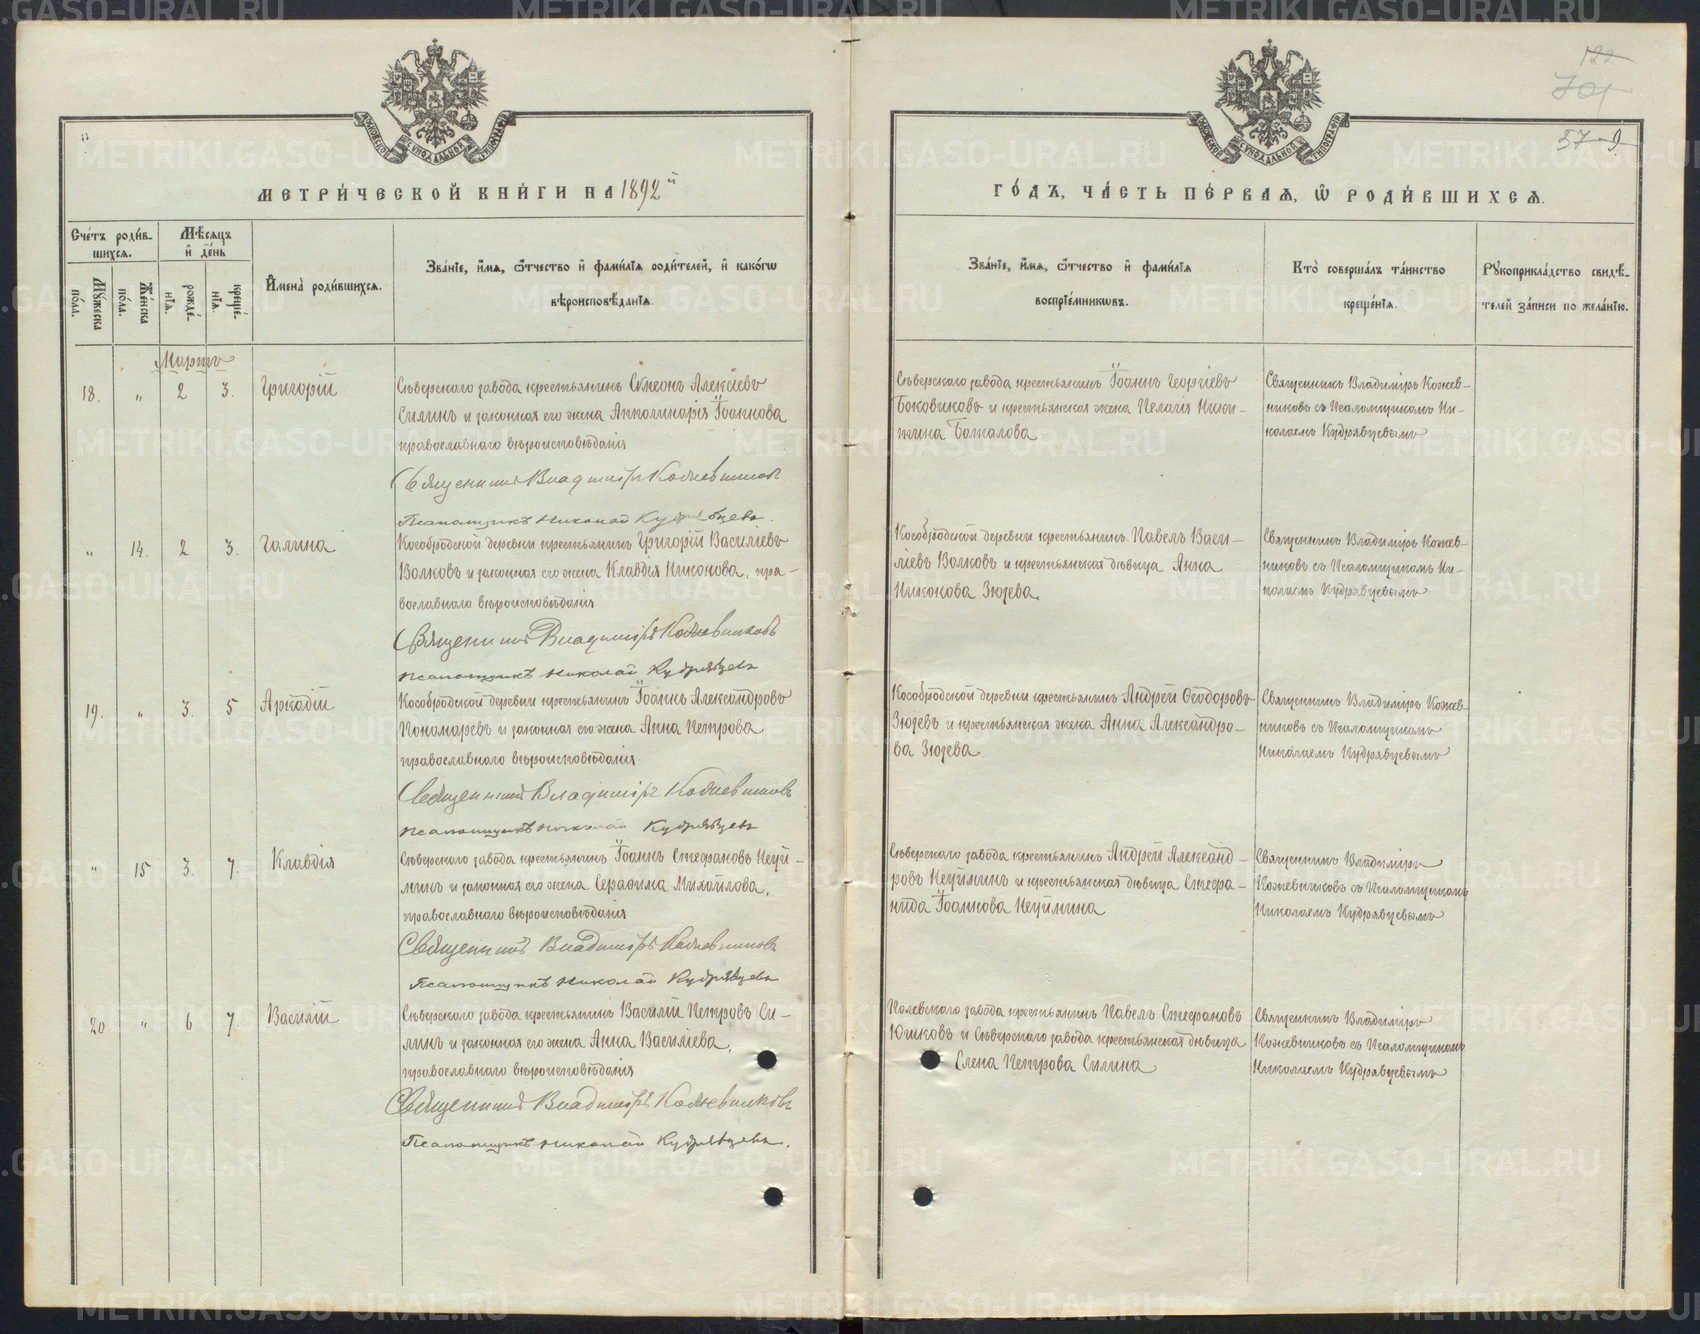 122
701
57-9
МЕТРИ́ЧЕСКОЙ КНИ́ГИ НА 1892й
ГО́ДЪ, ЧА́СТЬ ПЕ́РВАЯ, Ѡ҆ РОДИ́ВШИХСѦ.
Сче́тъ роди́в-
шихсѧ.
Мꙋжеска
по́ла.
Же́нска
по́ла.
Мѣ́сѧцъ
и҆ де́нь
рожде́-
нїѧ.
креще́-
нїѧ.
И҆мена̀ роди́вшихсѧ.
Зва́нїе, и҆́мѧ, ѻ҆́тчество и҆ фами́лїѧ роди́телей, и҆ како́гѡ
вѣроисповѣ́данїѧ.
Зва́нїе, и҆́мѧ, ѻ҆́тчество и҆ фами́лїѧ
воспрїе́мникѡвъ.
Кто̀ соверша́лъ та́инство
креще́нїѧ.
Рꙋкоприкла́дство свидѣ́-
телей за́писи по жела́нїю.
Мартъ
18. " 2 3. Григорій
Сѣверскаго завода крестьянинъ Сѵмеонъ Алексіевъ
Силинъ и законная его жена Апполинарія Іоаннова
православнаго вѣроисповѣданія
Священникъ Владиміръ Кожевниковъ
Псаломщикъ Николай Кудрявцевъ.
Сѣверскаго завода крестьянинъ Іоаннъ Георгіевъ
Боковиковъ и крестьянская жена Пелагія Ники-
тина Боталова
Священникъ Владиміръ Кожев-
никовъ съ Псаломщикомъ Ни-
колаемъ Кудрявцевымъ
" 14. 2 3. Галина
Кособродской деревни крестьянинъ Григорій Василіевъ
Волковъ и законная его жена Клавдія Никонова, пра-
вославнаго вѣроисповѣданія
Священникъ Владиміръ Кожевниковъ
Псаломщикъ Николай Кудрявцевъ
Кособродской деревни крестьянинъ Павелъ Васи-
ліевъ Волковъ и крестьянская дѣвица Анна
Никонова Зюзева.
Священникъ Владиміръ Кожев-
никовъ съ Псаломщикомъ Ни-
колаемъ Кудрявцевымъ
19. " 3. 5 Аркадій
Кособродской деревни крестьянинъ Іоаннъ Александровъ
Пономаревъ и законная его жена Анна Петрова
православнаго вѣроисповѣданія
Священникъ Владиміръ Кожевниковъ
Псаломщикъ Николай Кудрявцевъ
Кособродской деревни крестьянинъ Андрей Ѳеодоровъ
Зюзевъ и крестьянская жена Анна Александро-
ва Зюзева
Священникъ Владиміръ Кожев-
никовъ съ Псаломщикомъ
Николаемъ Кудрявцевымъ
" 15 3. 7. Клавдія
Сѣверскаго завода крестьянинъ Іоаннъ Стефановъ Неуй-
минъ и законная его жена Серафима Михайлова,
православнаго вѣроисповѣданія
Священникъ Владиміръ Кожевниковъ
Псаломщикъ Николай Кудрявцевъ
Сѣверскаго завода крестьянинъ Андрей Александ-
ровъ Неуйминъ и крестьянская дѣвица Стефа-
нида Іоаннова Неуймина
Священникъ Владиміръ
Кожевниковъ съ Псаломщикомъ
Николаемъ Кудрявцевымъ
20. " 6 7. Василій
Сѣверскаго завода крестьянинъ Василій Петровъ Си-
линъ и законная его жена Анна Василіева,
православнаго вѣроисповѣданія
Священникъ Владиміръ Кожевниковъ
Псаломщикъ Николай Кудрявцевъ.
Полевскаго завода крестьянинъ Павелъ Стефановъ
Юшковъ и Сѣверскаго завода крестьянская дѣвица
Елена Петрова Силина
Священникъ Владиміръ
Кожевниковъ съ Псаломщикомъ
Николаемъ Кудрявцевымъ
METRIKI.GASO-URAL.RU